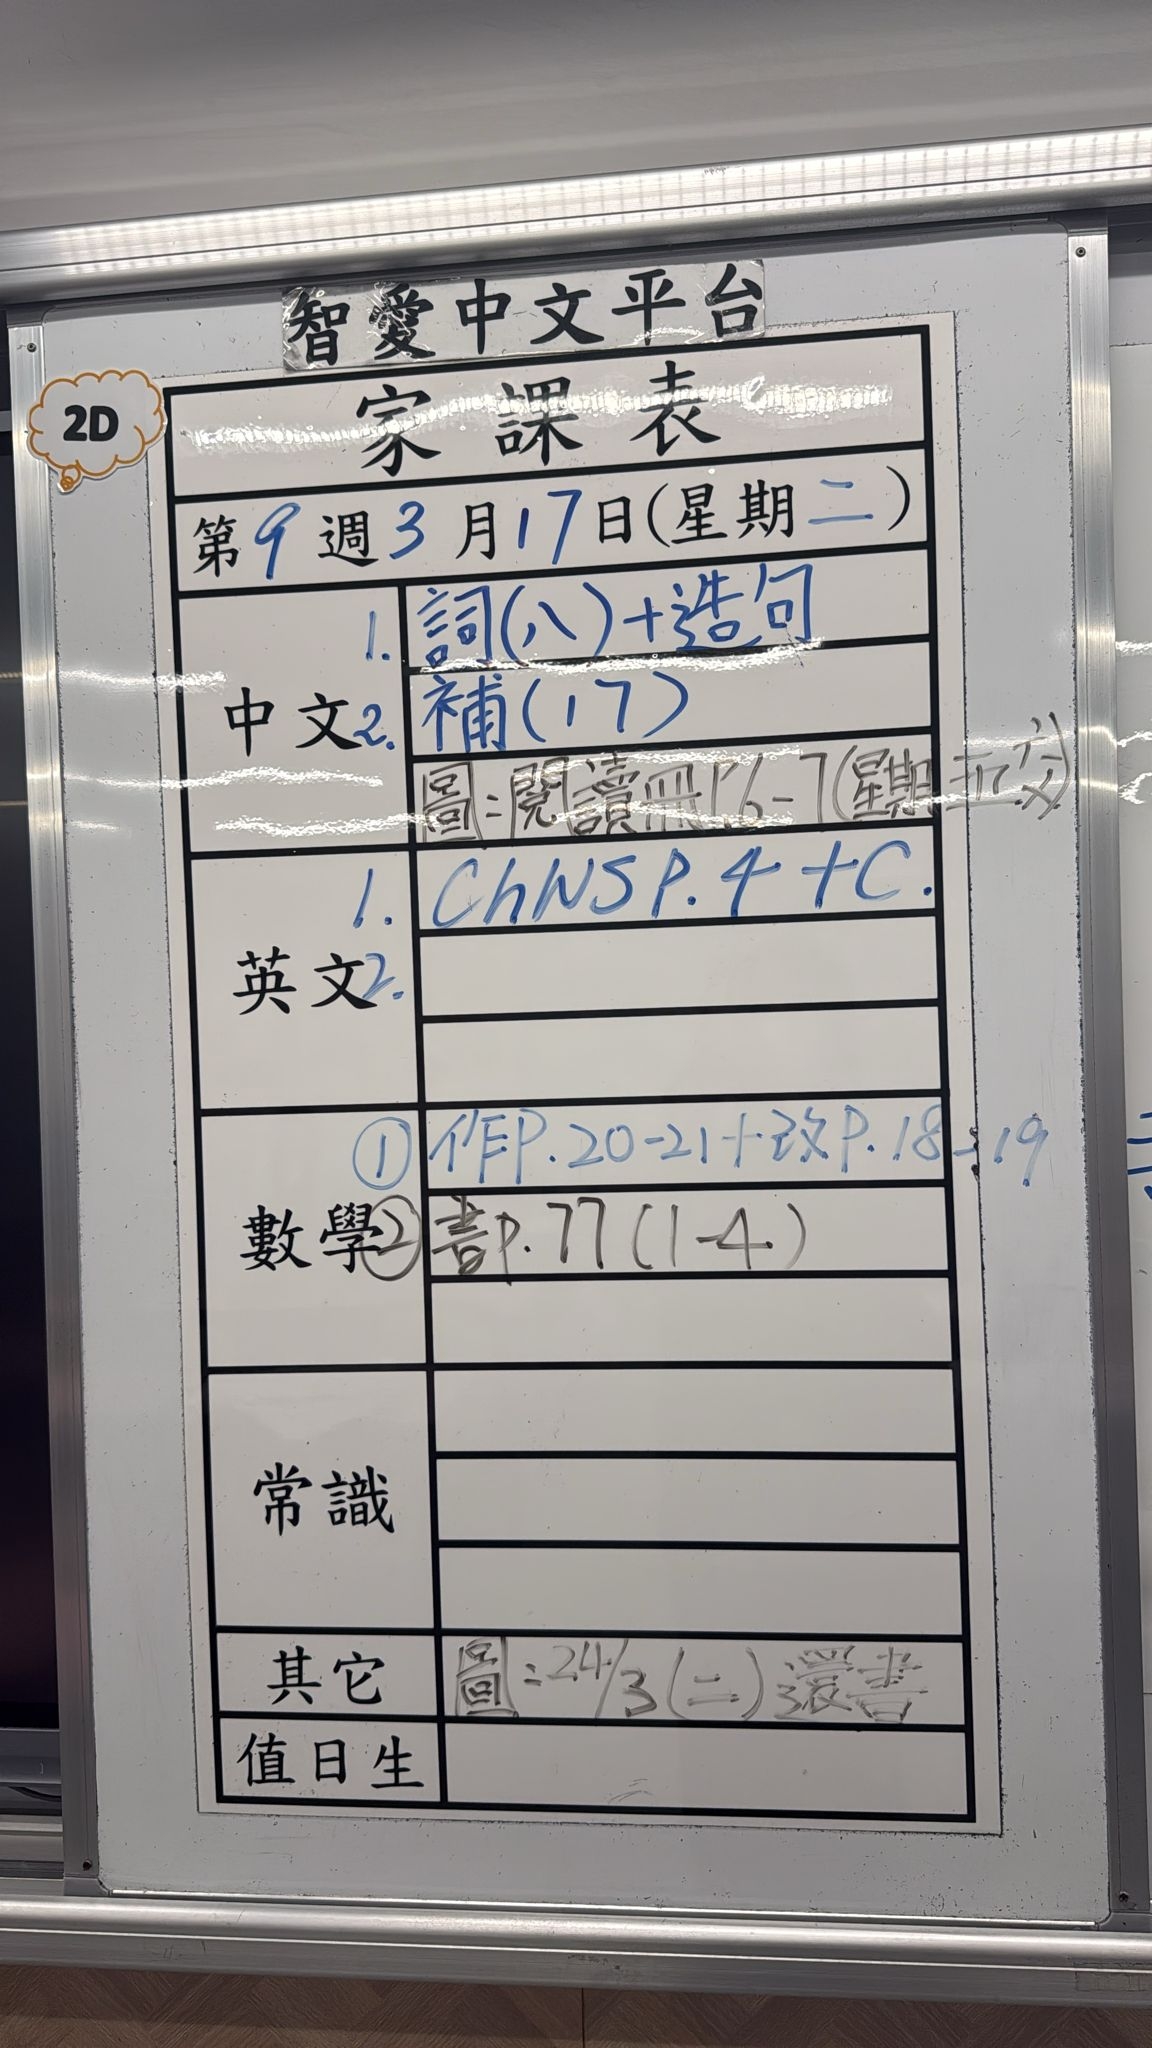 智愛中文平台
2D
家課表
第9週3月17日(星期二)
中文
1. 詞(八)+造句
2. 補(17)
圖:閱讀冊P.6-7(星期五交)
英文
1. ChNS P.4 +C.
2.
數學
① 作P.20-21+改P.18-19
② 書P.77(1-4)
常識
其它
圖:24/3(二)還書
值日生